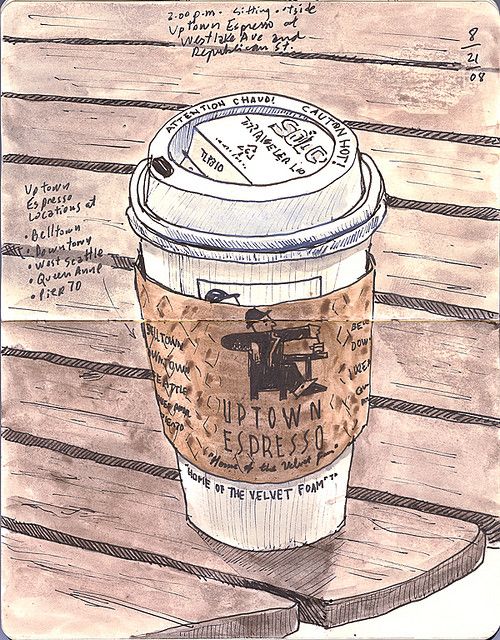 2:00 p.m. Sitting outside
Uptown Espresso at
Westlake Ave and
Republican St.
8
21
08
ATTENTION CHAUD! CAUTION HOT!
Solo
TRAVELER LID
TLB10
Uptown
Espresso
Locations at
• Belltown
• Downtown
• West Seattle
• Queen Anne
• Pier 70
BELLTOWN
DOWNTOWN
SEATTLE
QUEEN ANNE
BE
DOW
UPTOWN
ESPRESSO
"Home of the Velvet
"HOME OF THE VELVET FOAM"